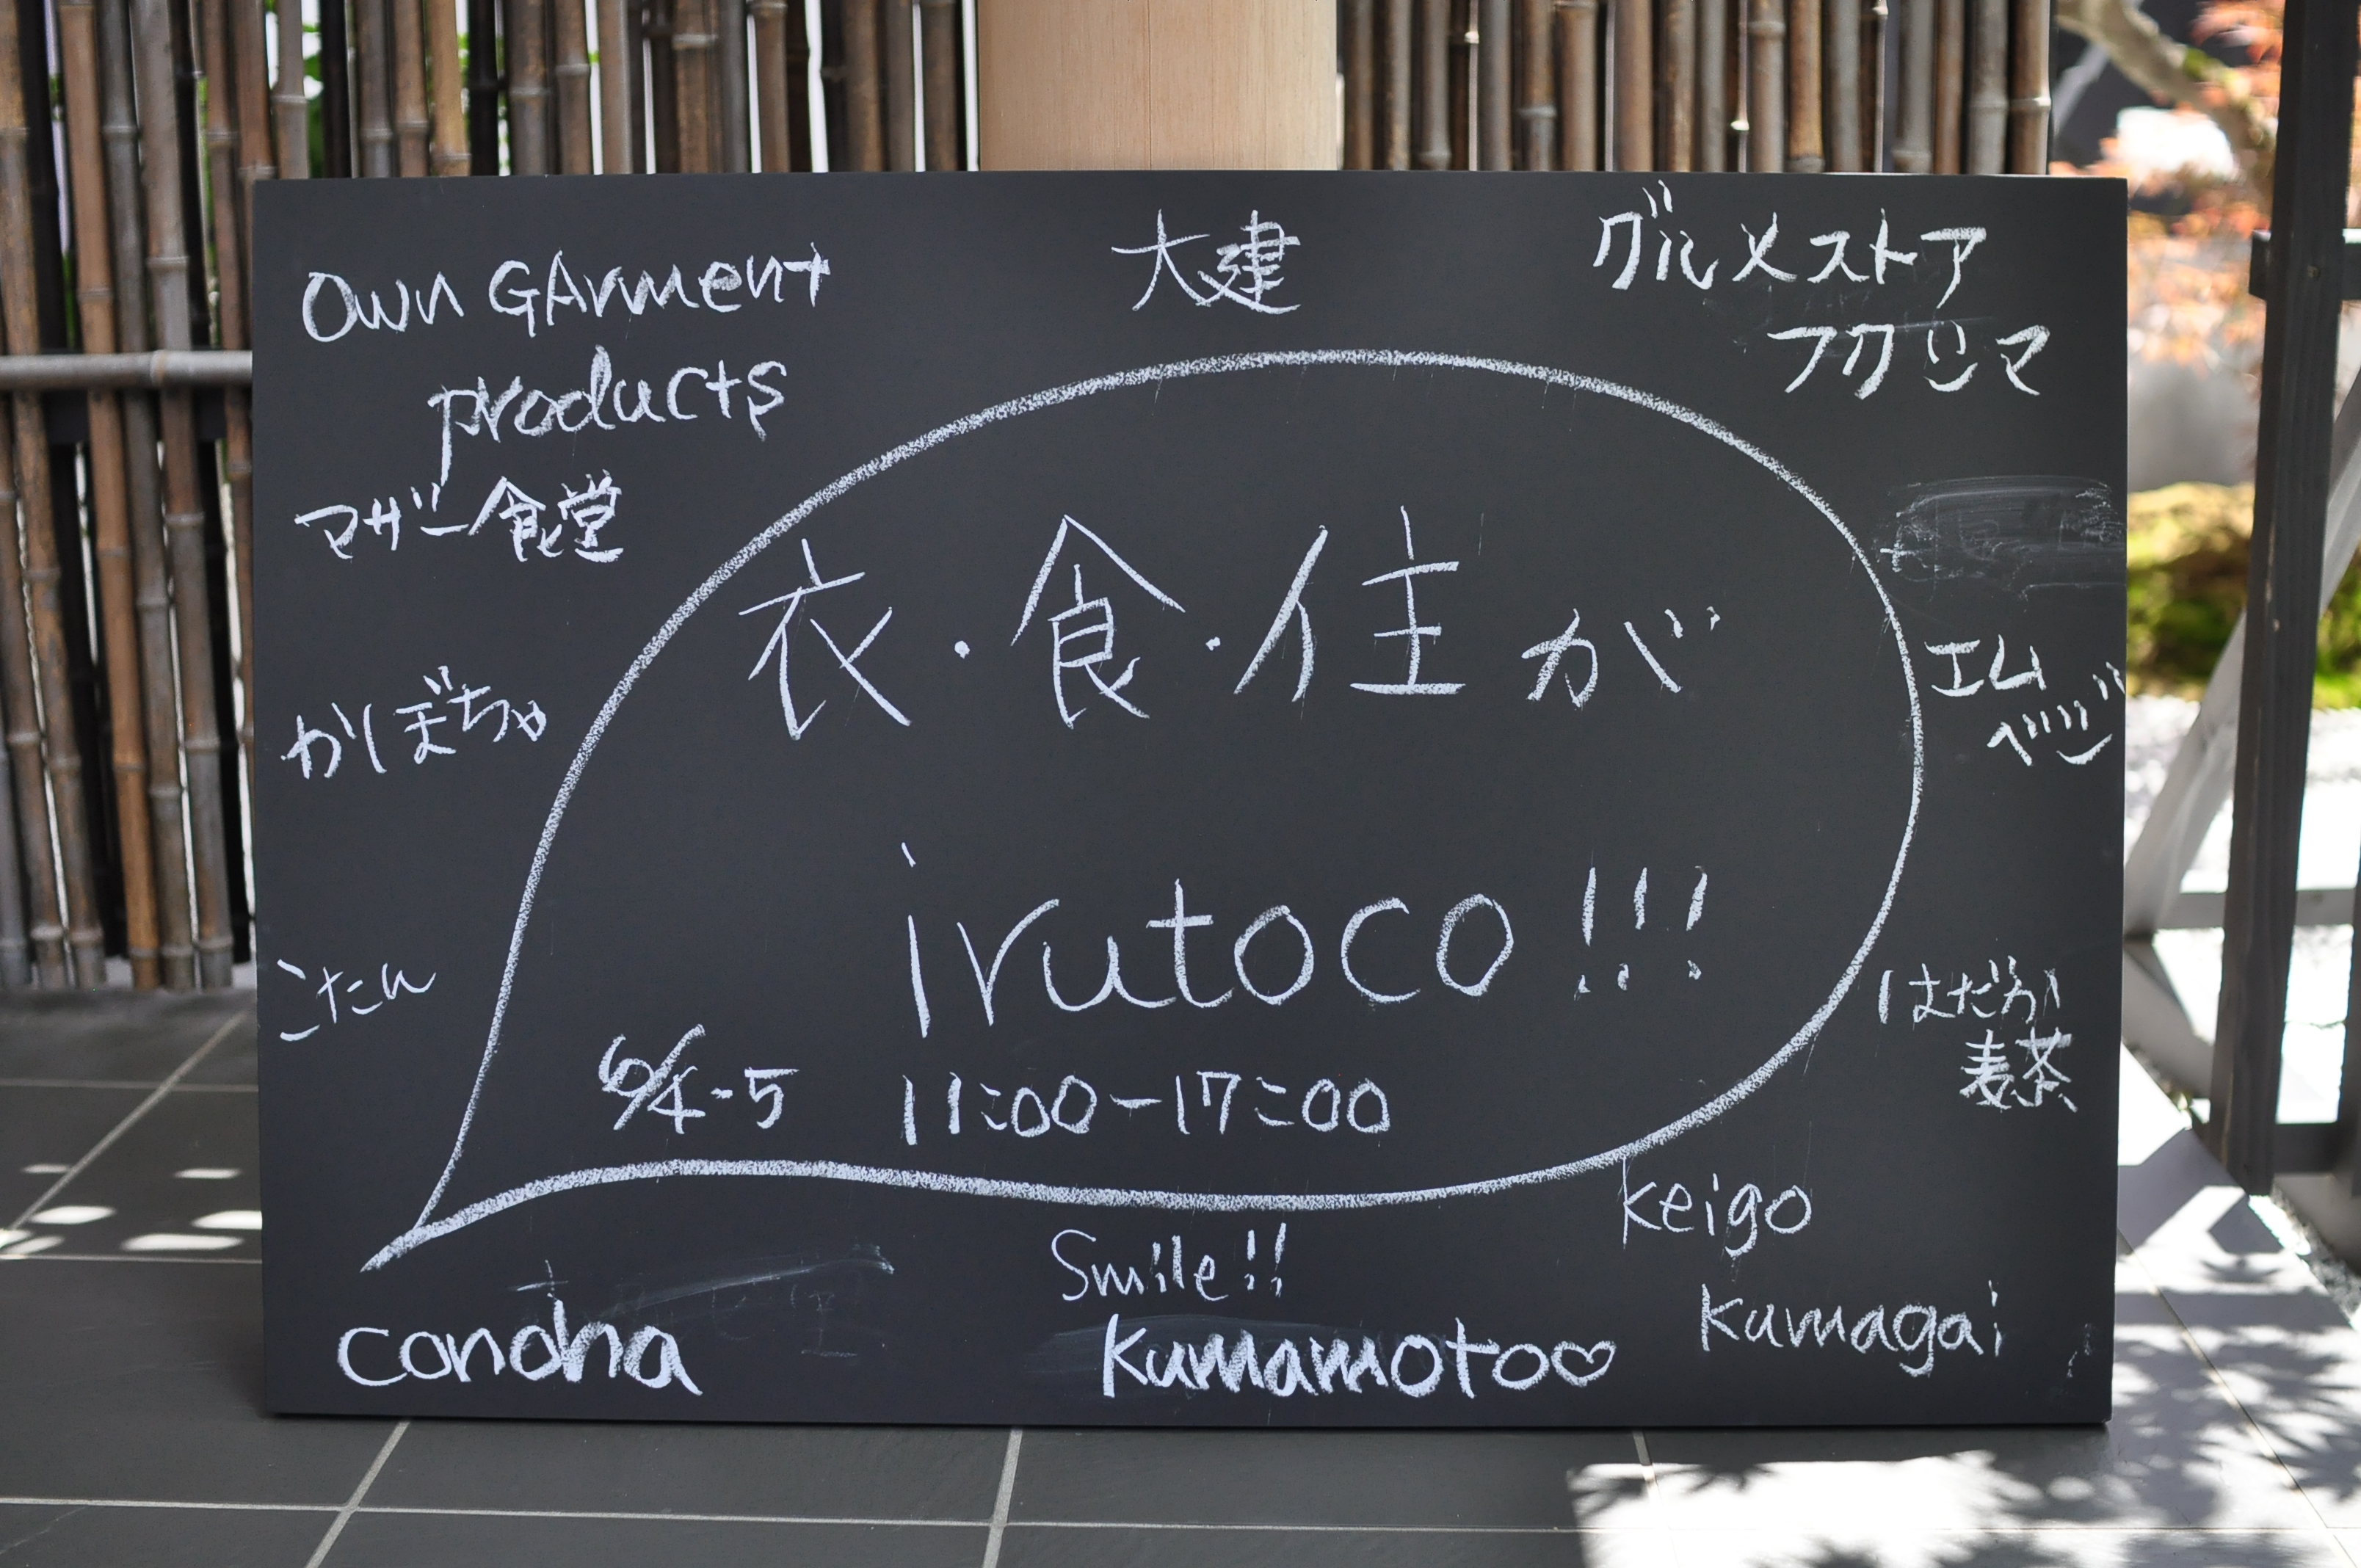 Own GArment
products
大建
グルメストア
フクシマ
マザー食堂
かぼちゃ
こたん
衣・食・住が
irutoco!!!
6/4-5 11:00-17:00
エム
ベジ
はだか
麦茶
conoha
Smile!!
kumamoto♡
keigo
kumagai